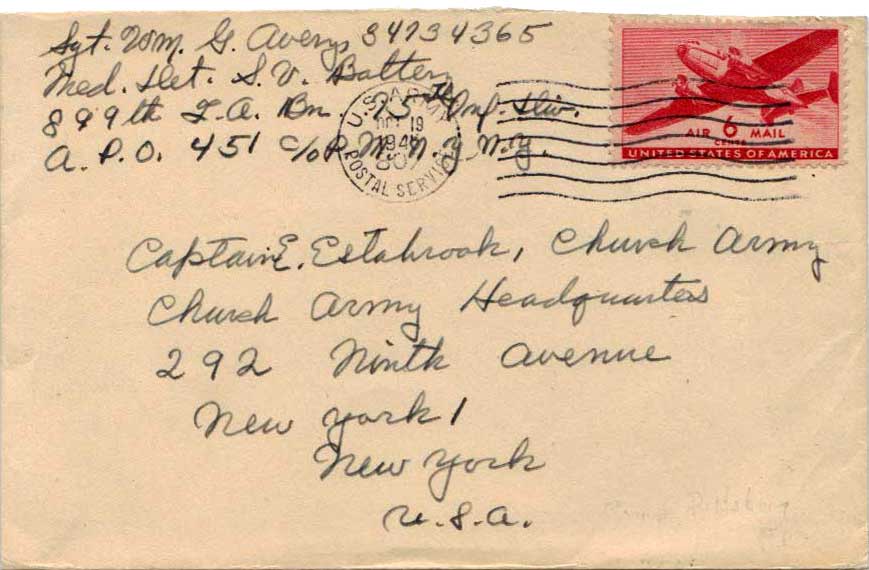 Sgt. Wm. G. Avery, 34734365
Med. Det. S.V. Battery
899th F.A. Bn. 75th Inf. Div.
A.P.O. 451 c/o P.M. N.Y. N.Y.
U.S. ARMY
OCT 19
POSTAL SERVICE
AIR 6 MAIL
CENTS
UNITED STATES OF AMERICA
Captain E. Estabrook, Church Army
Church Army Headquarters
292 Ninth Avenue
New York 1
New York
U.S.A.